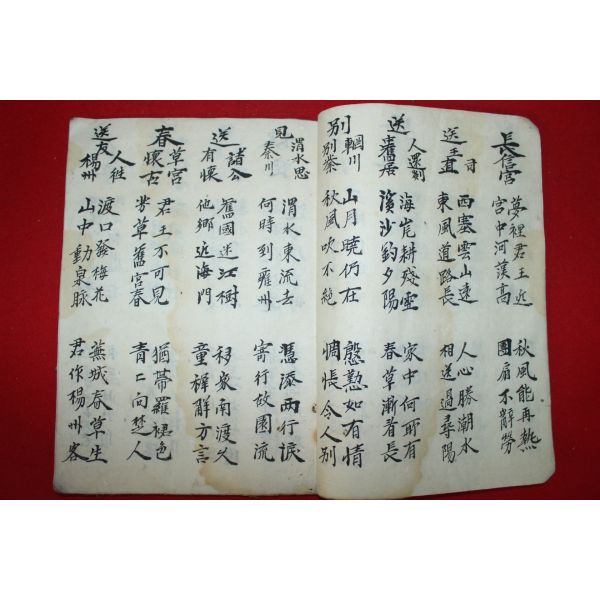 長信宮
夢裡君王近
宮中河漢高
秋風能再熱
團扇不辭勞
送王司直
西塞雲山遠
東風道路長
人心勝潮水
相送過尋陽
送人還
舊居
海岸耕殘雪
溪沙釣夕陽
家中何所有
春草漸看長
別輞川
別業
山月曉仍在
秋風吹不絶
慇懃如有情
惆悵令人別
見渭水思
秦川
渭水東流去
何時到雍州
憑添兩行淚
寄行故園流
送諸公
有懷
舊國迷江樹
他鄉近海門
移家南渡久
童稚解方言
春草宮
懷古
君王不可見
芳草舊宮春
猶帶羅裙色
青々向楚人
送友人往
楊州
渡口發梅花
山中動泉脉
蕪城春草生
君作楊州客